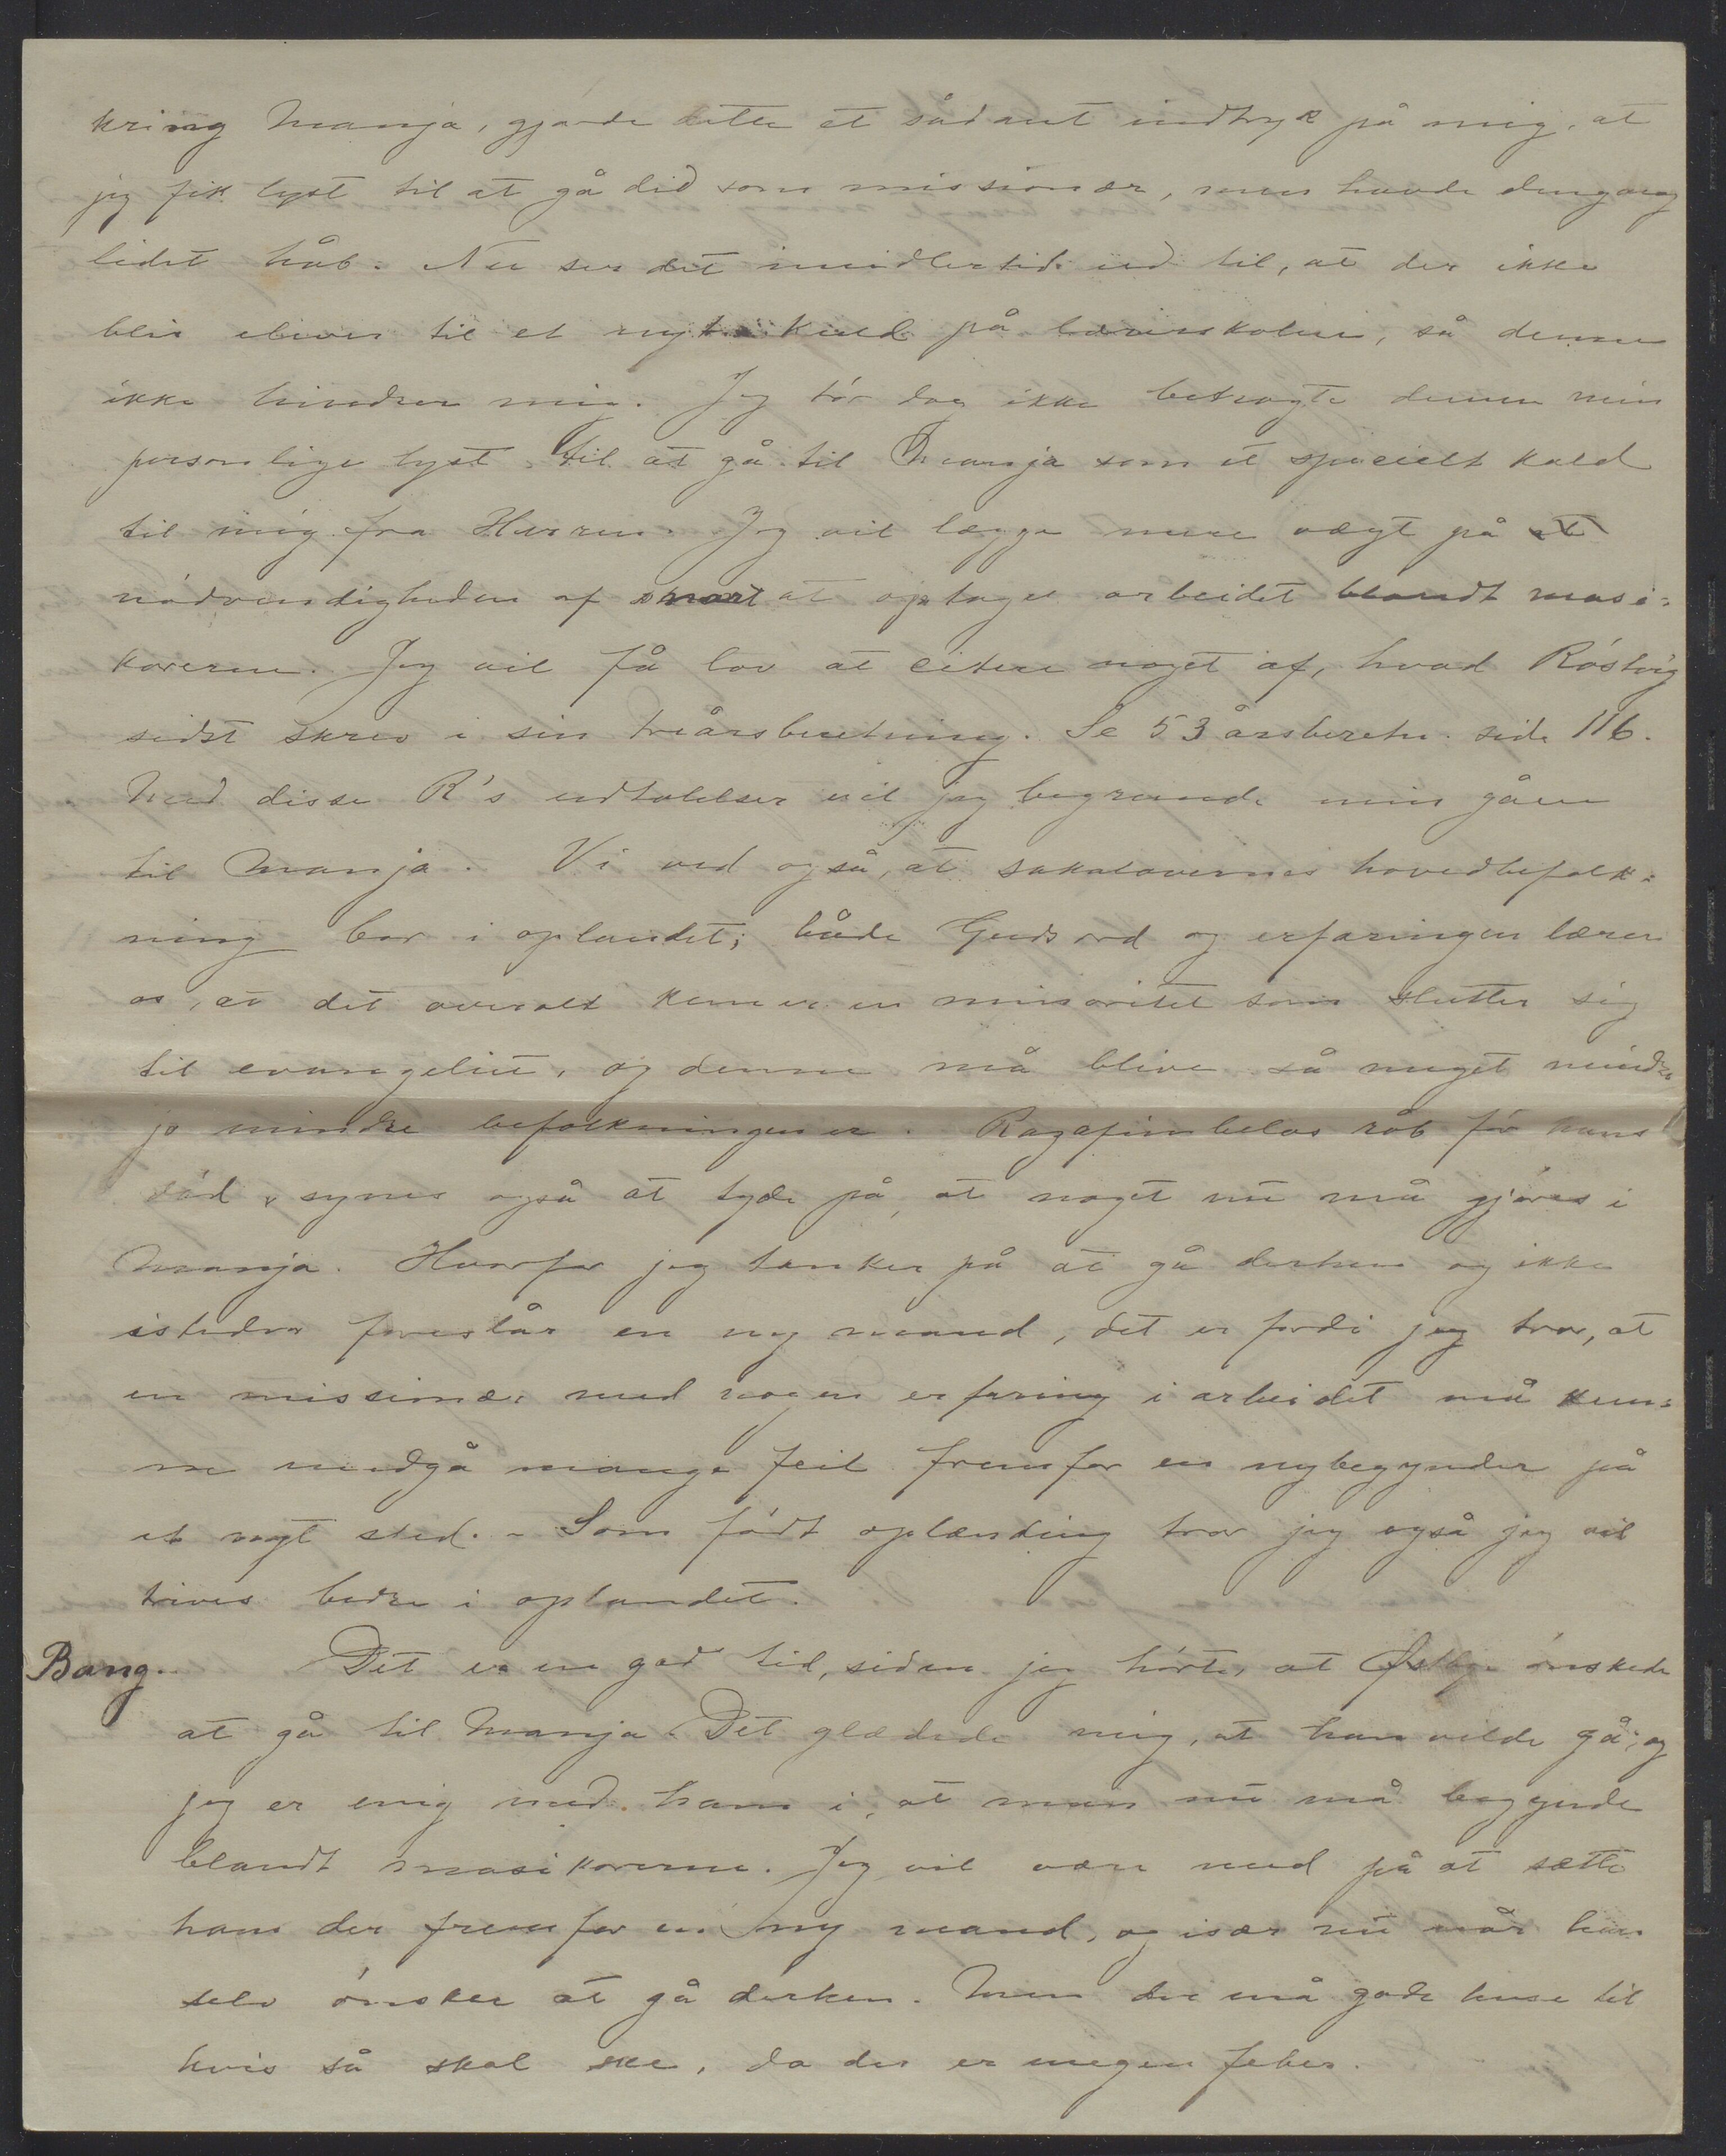 kring Manja, gjorde dette et sådant indtryk på mig, at
jeg fik lyst til at gå did som missionær, men havde dengang
lidet håb. Nu ser det imidlertid ud til, at der ikke
blir elever til et nyt kuld på lærerskolen, så denne
ikke hindrer mig. Jeg tór dog ikke betragte denne min
personlige lyst til at gå til Manja som et specielt kald
til mig fra Herren. Jeg vil lægge mere vægt på
nódvendigheden af snart at optage arbeidet blandt masi=
korerne. Jeg vil få lov at citere noget af, hvad Róstvig
sidst skrev i sin treårsberetning. Se 53 årsberetn. side 116.
Med disse R's udtalelser vil jeg begrunde min gåen
til Manja. Vi ved også, at sakalavernes hovedbefolk=
ning bor i oplandet; både Guds ord og erfaringen lærer
os, at det overalt kun er en minoritet som slutter sig
til evangeliet, og denne må blive så meget mindre
jo mindre befolkningen er. Razafimbelos råb fór hans
dód, synes også at tyde på, at noget nu må gjóres i
Manja. Hvorfor jeg tænker på at gå derhen og ikke
istedenfor foreslår en ny mand, det er fordi jeg tror, at
en missionær med nogen erfaring i arbeidet må kun=
ne undgå mange feil fremfor en nybegynder på
et nyt sted. - Som fódt oplænding tror jeg også jeg vil
trives bedre i oplandet.
Bang. Det er en god tid, siden jeg hórte, at ónskede
at gå til Manja. Det glædede mig, at han vilde gå; og
jeg er enig med ham i, at man nu må begynde
blandt masikorerne. Jeg vil være med på at sætte
ham der fremfor en ny mand, og især nu når han
selv ónsker at gå derhen. Men der må gode huse til
hvis så skal ske, da der er megen feber.